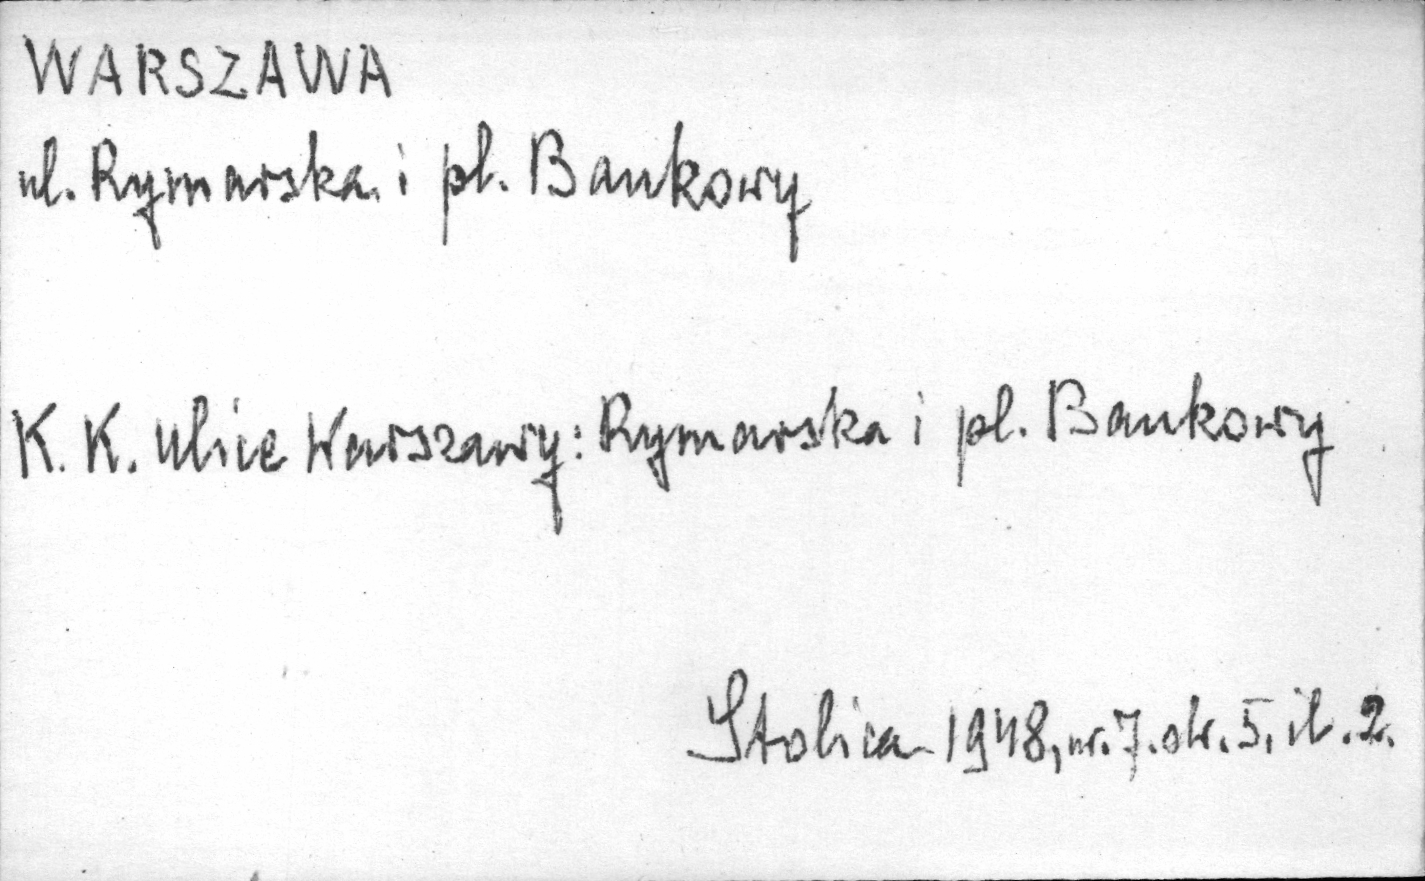 WARSZAWA
ul. Rymarska i pl. Bankowy
K. K. Ulice Warszawy: Rymarska i pl. Bankowy
Stolica 1948, nr. 7. str. 5, il. 2.